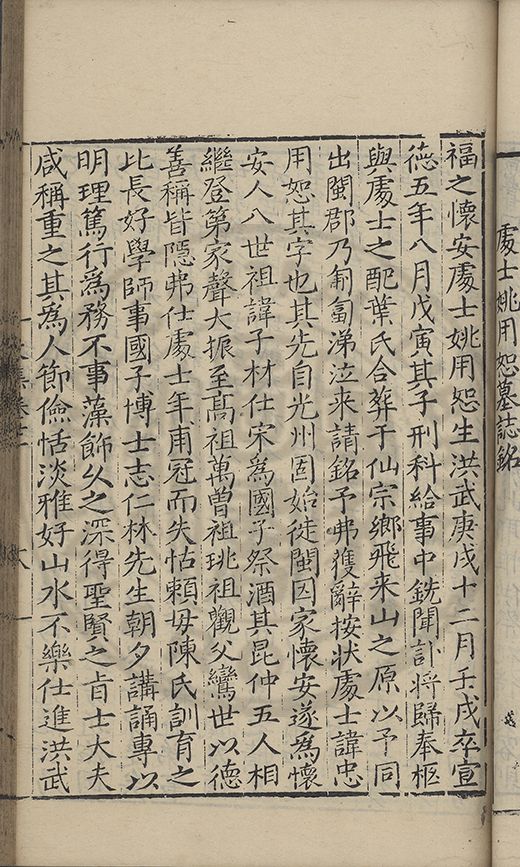 處士姚用恕墓誌銘
福之懷安處士姚用恕生洪武庚戌十二月壬戌卒宣
德五年八月戊寅其子刑科給事中銑聞訃將歸奉柩
與處士之配葉氏合葬于仙宗鄉飛来山之原以予同
出閩郡乃匍匐涕泣来請銘予弗獲辭按状處士諱忠
用恕其字也其先自光州固始徙閩因家懷安遂為懷
安人八世祖諱子材仕宋為國子祭酒其昆仲五人相
繼登第家聲大振至髙祖萬曾祖珧祖觀父鸞世以德
善稱皆隠弗仕處士年甫冠而失怙頼母陳氏訓育之
比長好學師事國子博士志仁林先生朝夕講誦專以
明理篤行為務不事藻飾久之深得聖賢之旨士大夫
咸稱重之其為人節儉恬淡雅好山水不樂仕進洪武